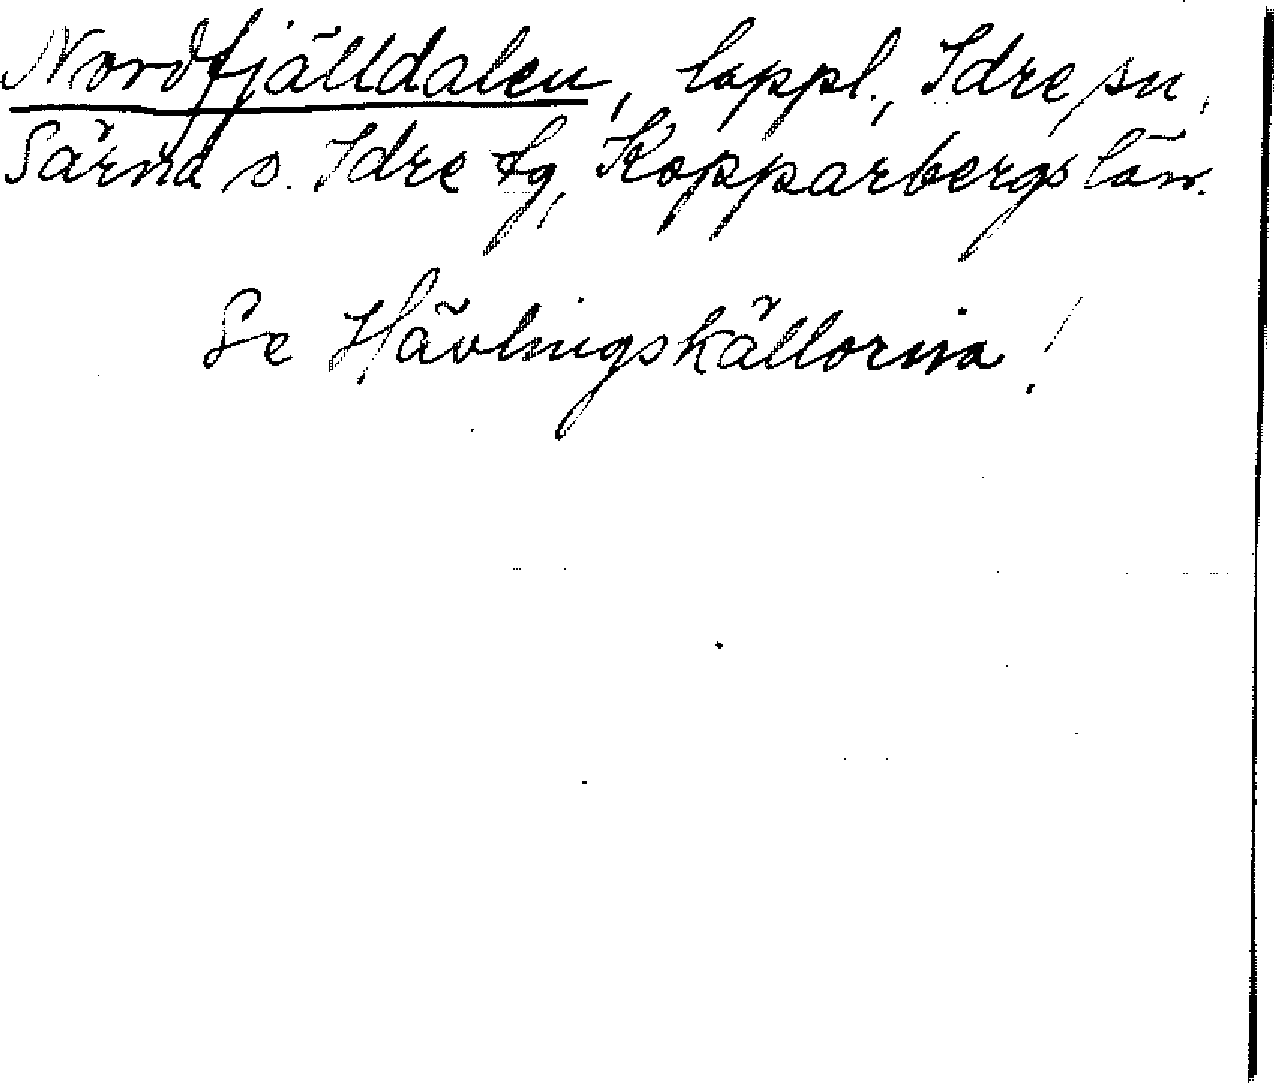 Nordfjälldalen, lappl., Idre sn,
Särna s. Idre tg, Kopparbergs län.
Se Hävlingskällorna!